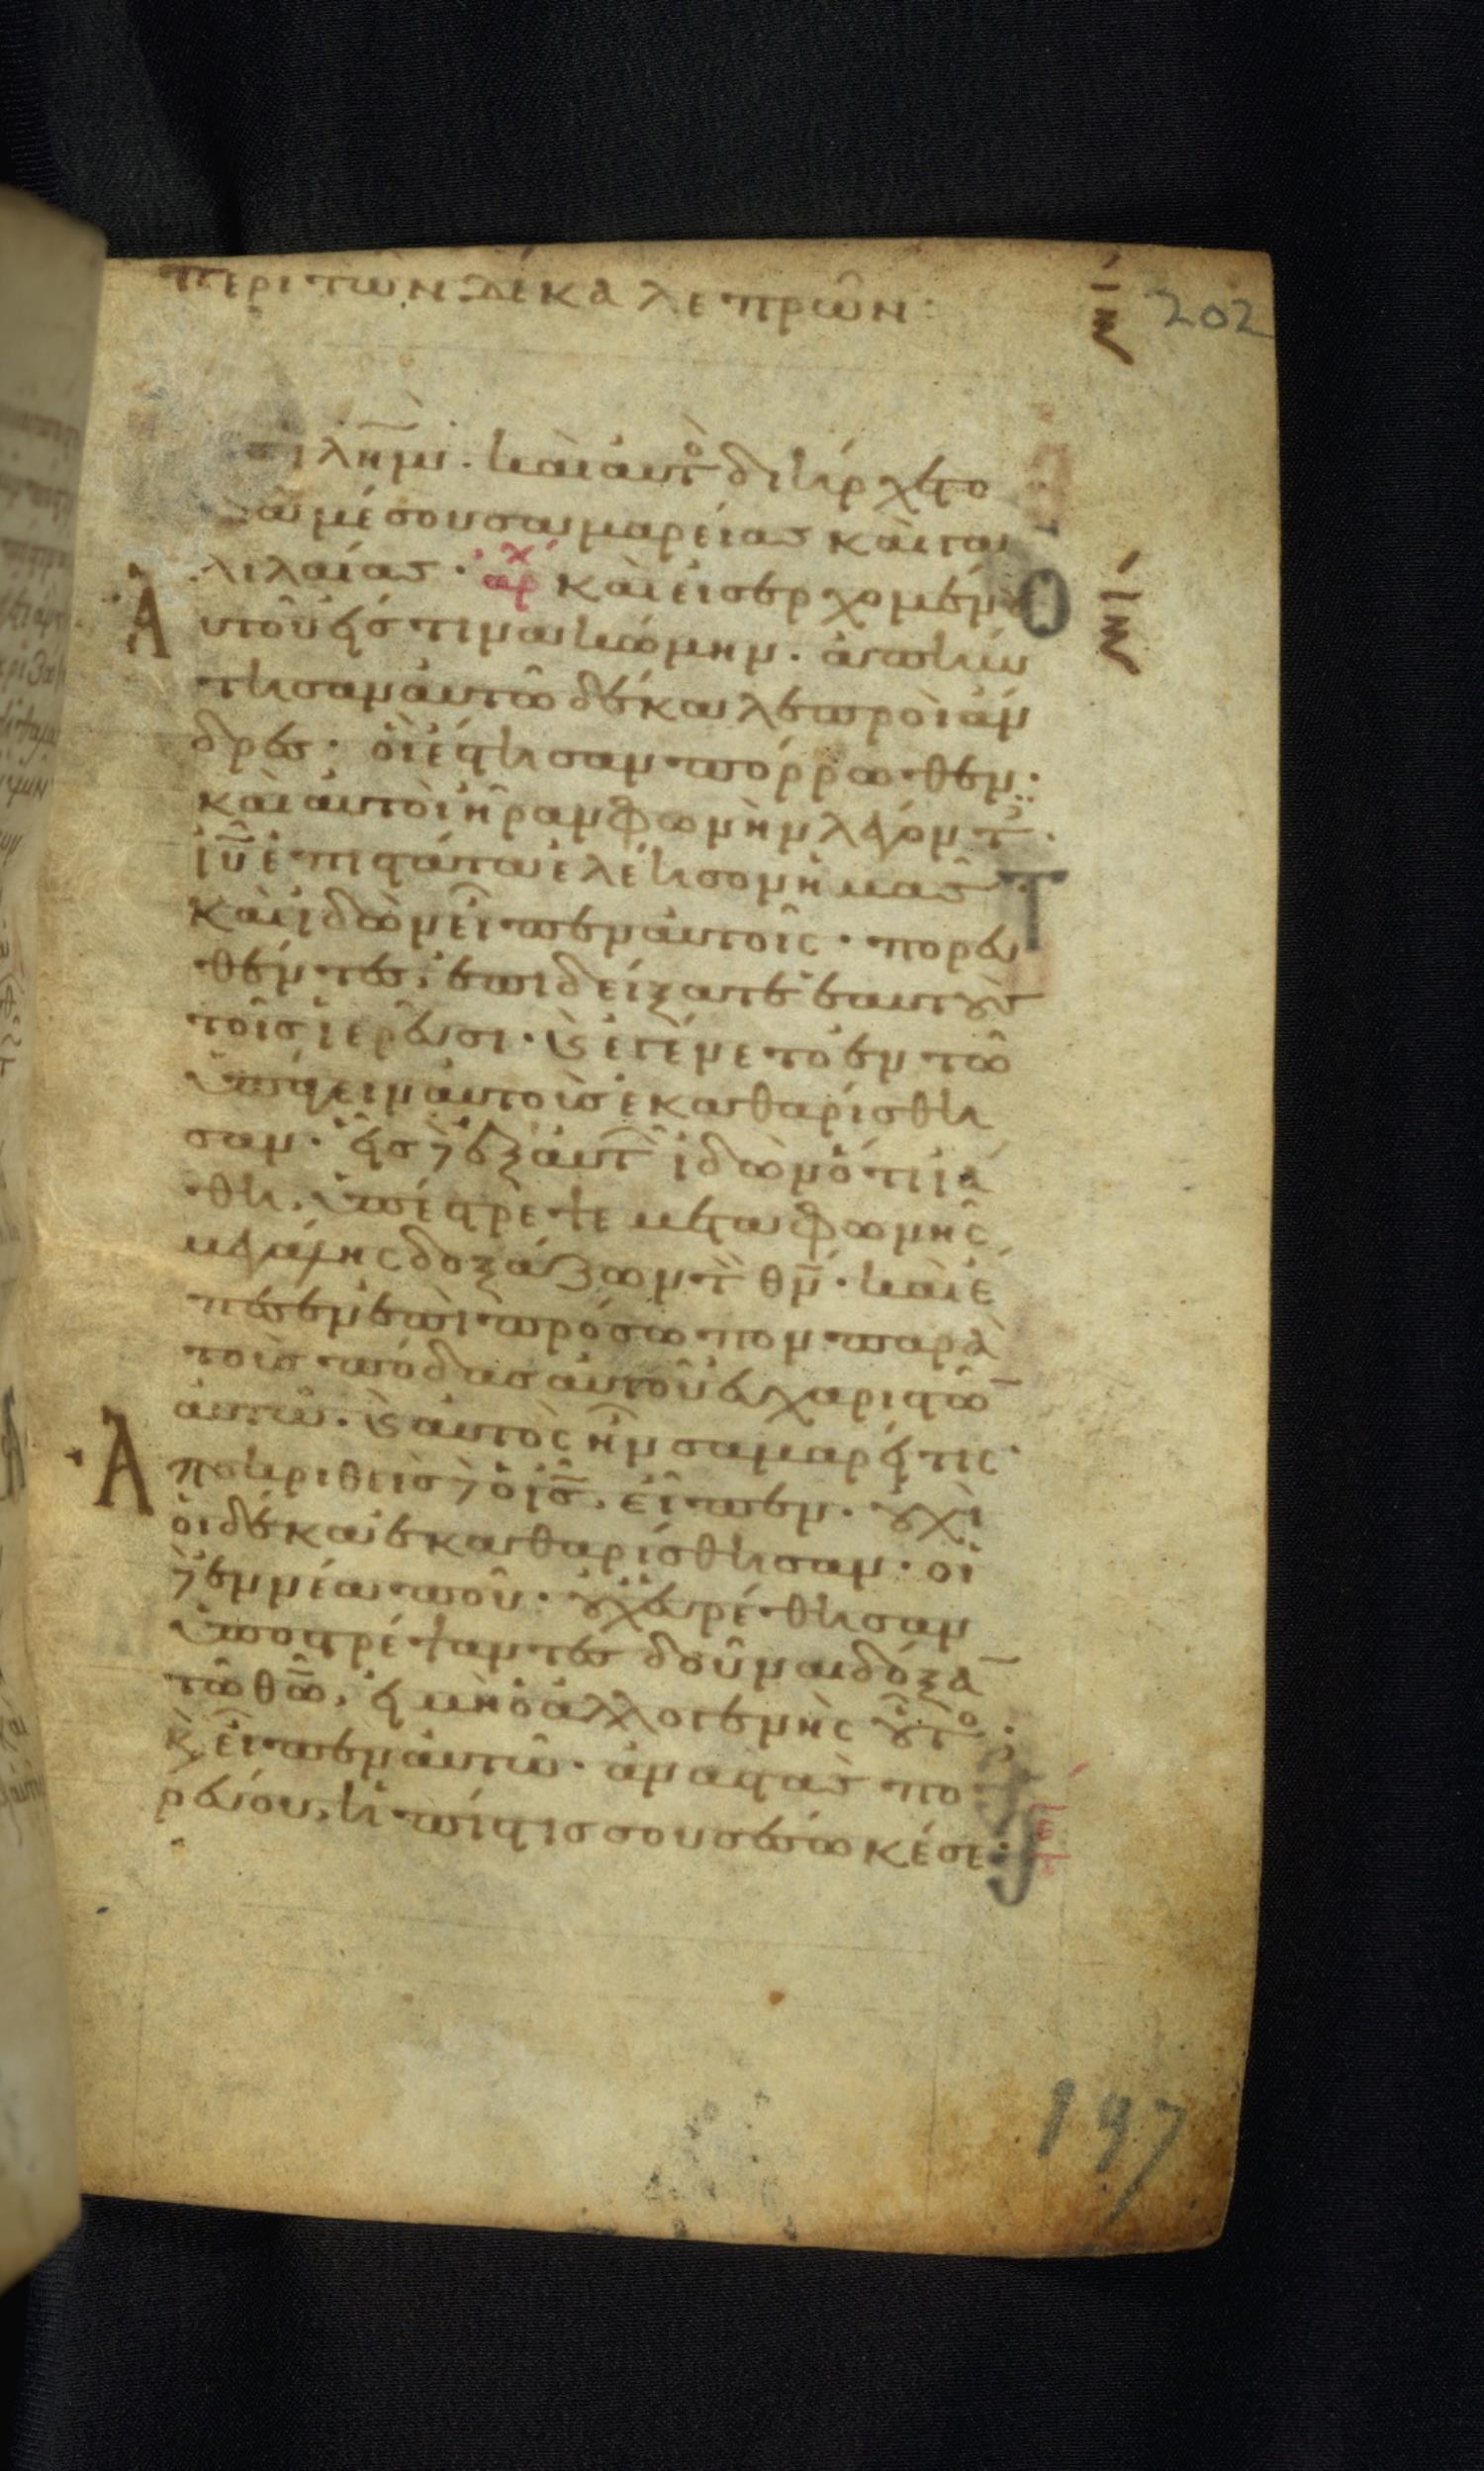 περι των δέκα λεπρῶν:
ξ̅
202
ϊλη̅μ̀· καὶ αυτὸ διήρχετο
δϊαμέσου σαμαρείασ καὶ γα
λιλαίασ· ἀρχ καὶ εἰσερχομέν
ξ̅
Αυτοῦ ἔστινα κώμην· ἀπήν
τησαν ἀυτῶ δέκα λεπροὶ ἄν
δρεσ· οἳ ἔστησαν πόρρωθεν·
καὶ αυτοὶ ἦραν φωνὴν λέγοντ·
ἰ̅υ̅ ἐπιστάτα ἐλέησον ἡμασ·
καὶ ἰδὼν εἶπεν ἀυτοῖς· πορευ
θέντεσ, ἐπιδείξατε ἑαυτοὺσ
τοῖσ ἱερεῦσι· ϗ ἐγένετο ἐν τῶ
ὑπάγειν ἀυτοὺσ ἐκαθαρίσθη
σαν· εἷσ δὲ ἐξ ἀυτ ἰδὼν ὅτι ἰά
θη, ὑπέστρεψε μετα φωνῆς
μεγάλης δοξάζων τ θ̅ν̅· καὶ ἔ
πεσεν ἐπὶ πρόσωπον παρὰ
τοὺσ πόδασ ἀυτοῦ ἐυχαριστῶ̅
ἀυτῶ· ϗ ἀυτὸς ἦν σαμαρείτις·
Αποκριθεὶσ δὲ ὁ ἰ̅σ̅, εἶπεν· οὐχὶ
ὁι δέκα ἐκαθαρίσθησαν· οἱ
δὲ ἐννέα ποῦ· οὐχ ἑυρέθησαν
ὑποστρέψαντεσ δοῦναι δόξα̅
τῶ θ̅ῶ̅, εἰ μὴ ὁ ἀλλογενὴς οὗτο·
κ, εἶπεν ἀυτῶ· ἀναστὰσ πο
ρεύου, ἡ πίστισ σου σέσωκέ σε:
τε
197